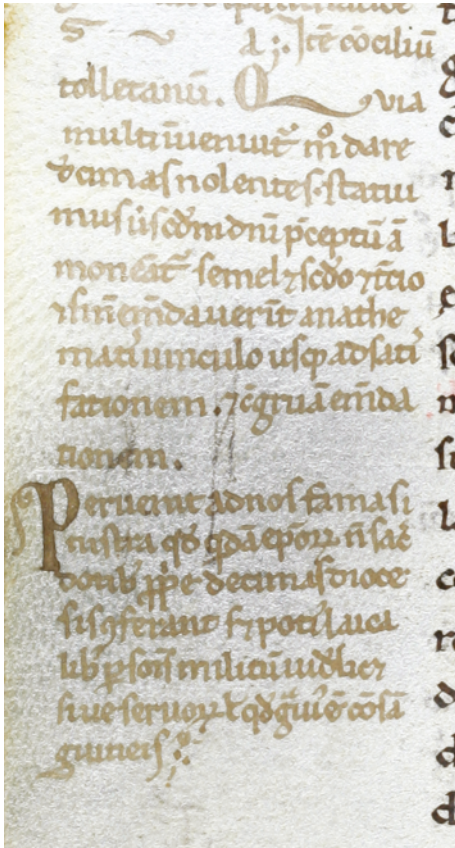 a ;. Itē cōciliū
tolletanū. Quia
multi īueniūt᷑ m̊ dare
decimas nolentes. statui
mus ū scdm dnī p̄ceptū ā
moneāt᷑ semel ⁊ scdo ⁊ t̓cio
⁊ si n̄ em̄dauerīt anathe
matis uinculo usq; ad satis
fationem. ⁊ cg̃ruā em̄da
tionem.
Peruenit ad nos fama si
nistra qd̓ q̓dā epōꝝ n̄ sac̄
dotib; ꝓp̄e decimas dioce
sis ꝯferant s; poti᷒ laica
lib; ꝑsonis militū uidꝫ
siue seruoꝝ ł qd̓ g̃ui᷒ ē cōsā
guineis ;